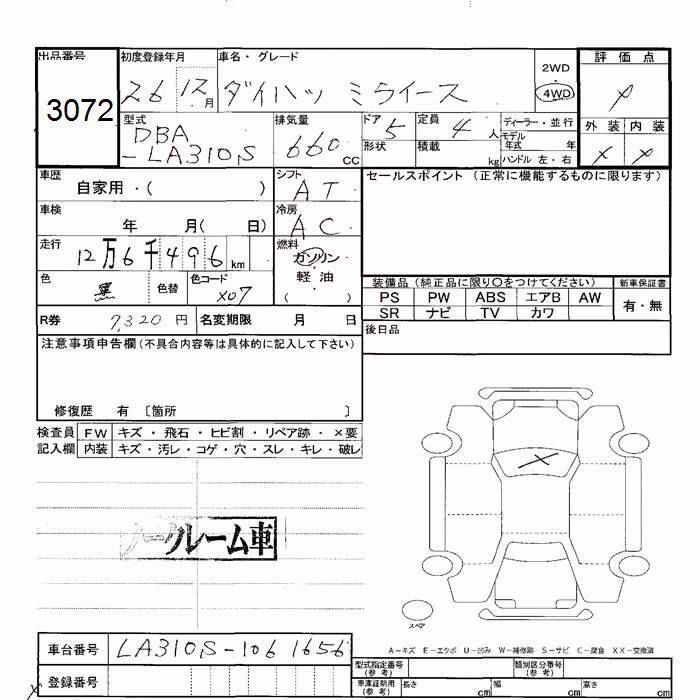 出品番号 初度登録年月 車名・グレード 評価点
3072 26 12月 ダイハツ ミライース 2WD 4WD
外装 内装
型式 排気量 ドア 定員 ディーラー・並行
DBA 660 CC 5 4人 モデル年式 年
-LA310S 形状 積載 kg ハンドル 左・右
車歴 シフト セールスポイント (正常に機能するものに限ります)
自家用・( ) AT
車検 冷房
年 月( 日) AC
走行 燃料
12万6千496 km ガソリン
色 色替 色コード 軽油
黒 X07 ( )
装備品 (純正品に限り〇をつけてください) 新車保証書
PS PW ABS エアB AW 有・無
SR ナビ TV カワ
R券 7,320円 名変期限 月 日
後日品
注意事項申告欄(不具合内容等は具体的に記入して下さい)
修復歴 有 〔箇所 〕
検査員 FW キズ・飛石・ヒビ割・リペア跡・×要
記入欄 内装 キズ・汚レ・コゲ・穴・スレ・キレ・破レ
ノークレーム車
スペア
A-キズ E-エクボ U-凹み W-補修跡 S-サビ C-腐食 XX-交換済
車台番号 LA310S-1061656
型式指定番号(参考) 類別区分番号(参考)
登録番号
車庫証明用(参考) 長さ cm 幅 cm 高さ cm